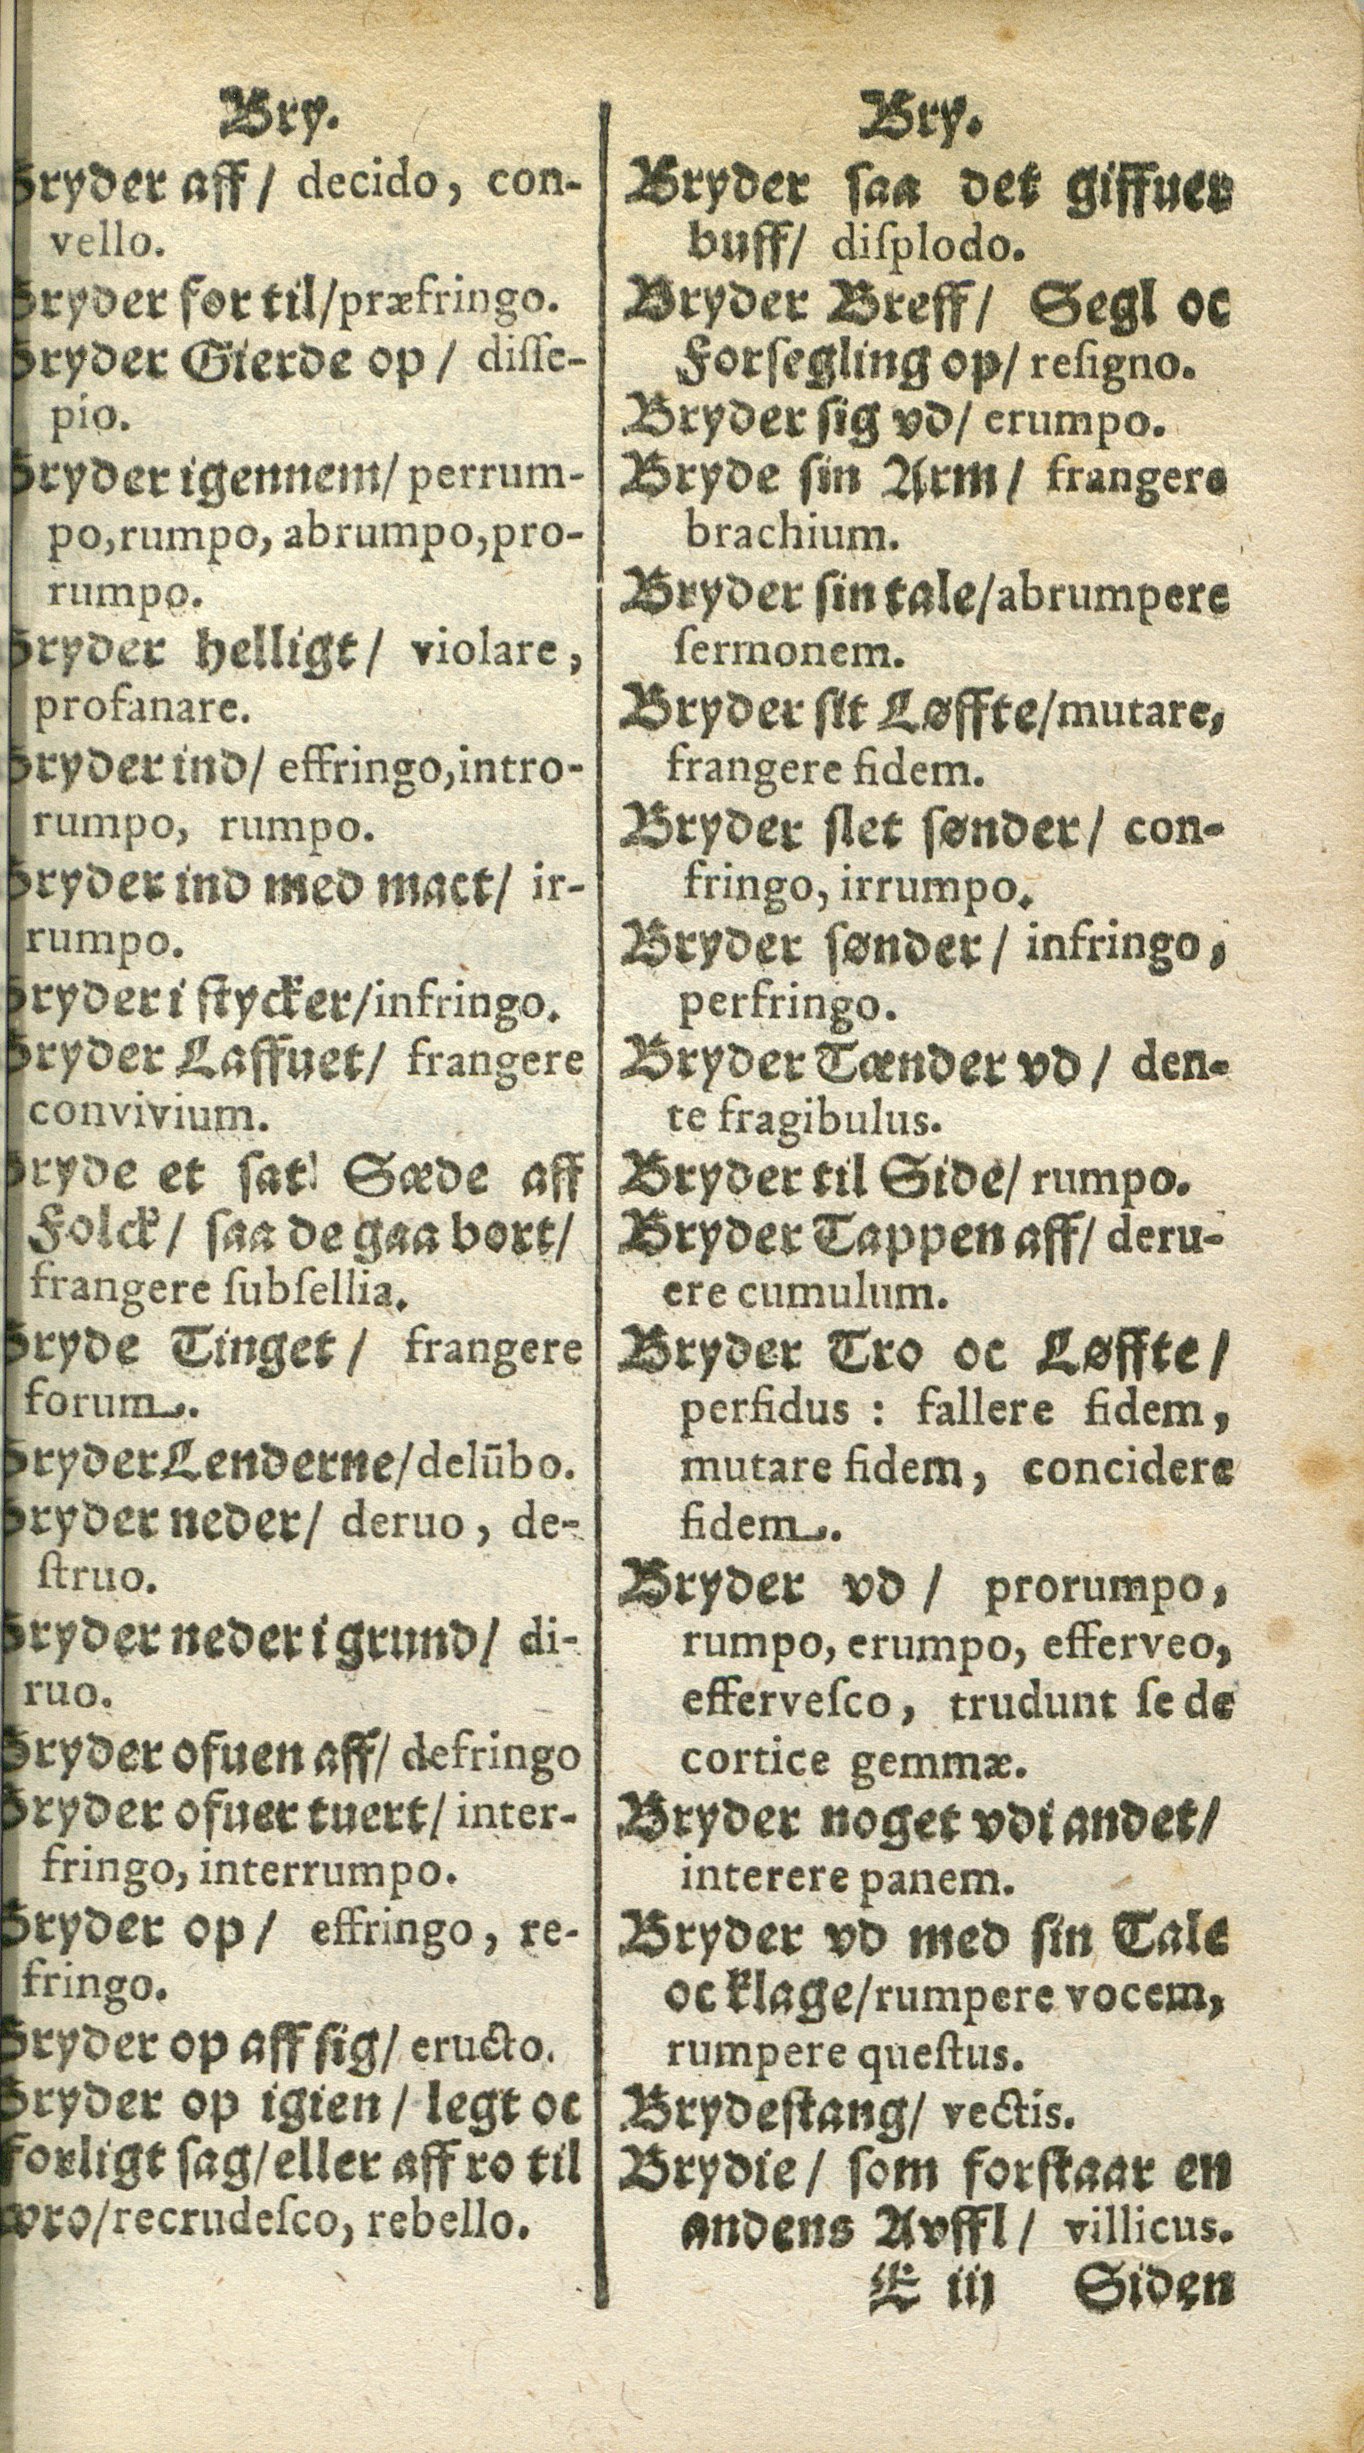 Bry.
Bryder aff/ decido, con-
vello.
Bryder for til/præfringo.
Bryder Gierde op/ diſſe-
pio.
Bryder igennem/ perrum-
po,rumpo, abrumpo,pro-
rumpo.
Bryder helligt/ violare,
profanare.
Bryder ind/ effringo,intro-
rumpo, rumpo.
Bryder ind med mact/ ir-
rumpo.
Bryder i ſtycker/infringo.
Bryder Laffuet/ frangere
convivium.
Bryde et ſat Sæde aff
Folck/ ſaa de gaa bort/
frangere ſubſellia.
Bryde Tinget/ frangere
forum.
Bryder Lenderne/delūbo.
Bryder neder/ deruo, de-
ſtruo.
Bryder neder i grund/ di-
ruo.
Bryder ofuen aff/ defringo
Bryder ofuer tuert/ inter-
fringo, interrumpo.
Bryder op/ effringo, re-
fringo.
Bryder op aff ſig/ eructo.
Bryder op igien/ legt oc
forligt ſag/eller aff ro til
wro/recrudeſco, rebello.
Bry.
Bryder ſaa det giffuer
buff/ diſplodo.
Bryder Breff/ Segl oc
Forſegling op/ reſigno.
Bryder ſig vd/ erumpo.
Bryde ſin Arm/ frangere
brachium.
Bryder ſin tale/abrumpere
ſermonem.
Bryder ſit Løffte/mutare,
frangere fidem.
Bryder ſlet ſønder/ con-
fringo, irrumpo.
Bryder ſønder/ infringo,
perfringo.
Bryder Tænder vd/ den-
te fragibulus.
Bryder til Side/ rumpo.
Bryder Tappen aff/ deru-
ere cumulum.
Bryder Tro oc Løffte/
perfidus : fallere fidem,
mutare fidem, concidere
fidem.
Bryder vd/ prorumpo,
rumpo, erumpo, efferveo,
efferveſco, trudunt ſe de
cortice gemmæ.
Bryder noget vdi andet/
interere panem.
Bryder vd med ſin Tale
oc klage/rumpere vocem,
rumpere queſtus.
Brydeſtang/ vectis.
Brydie/ ſom forſtaar en
andens Avffl/ villicus.
E iij Siden